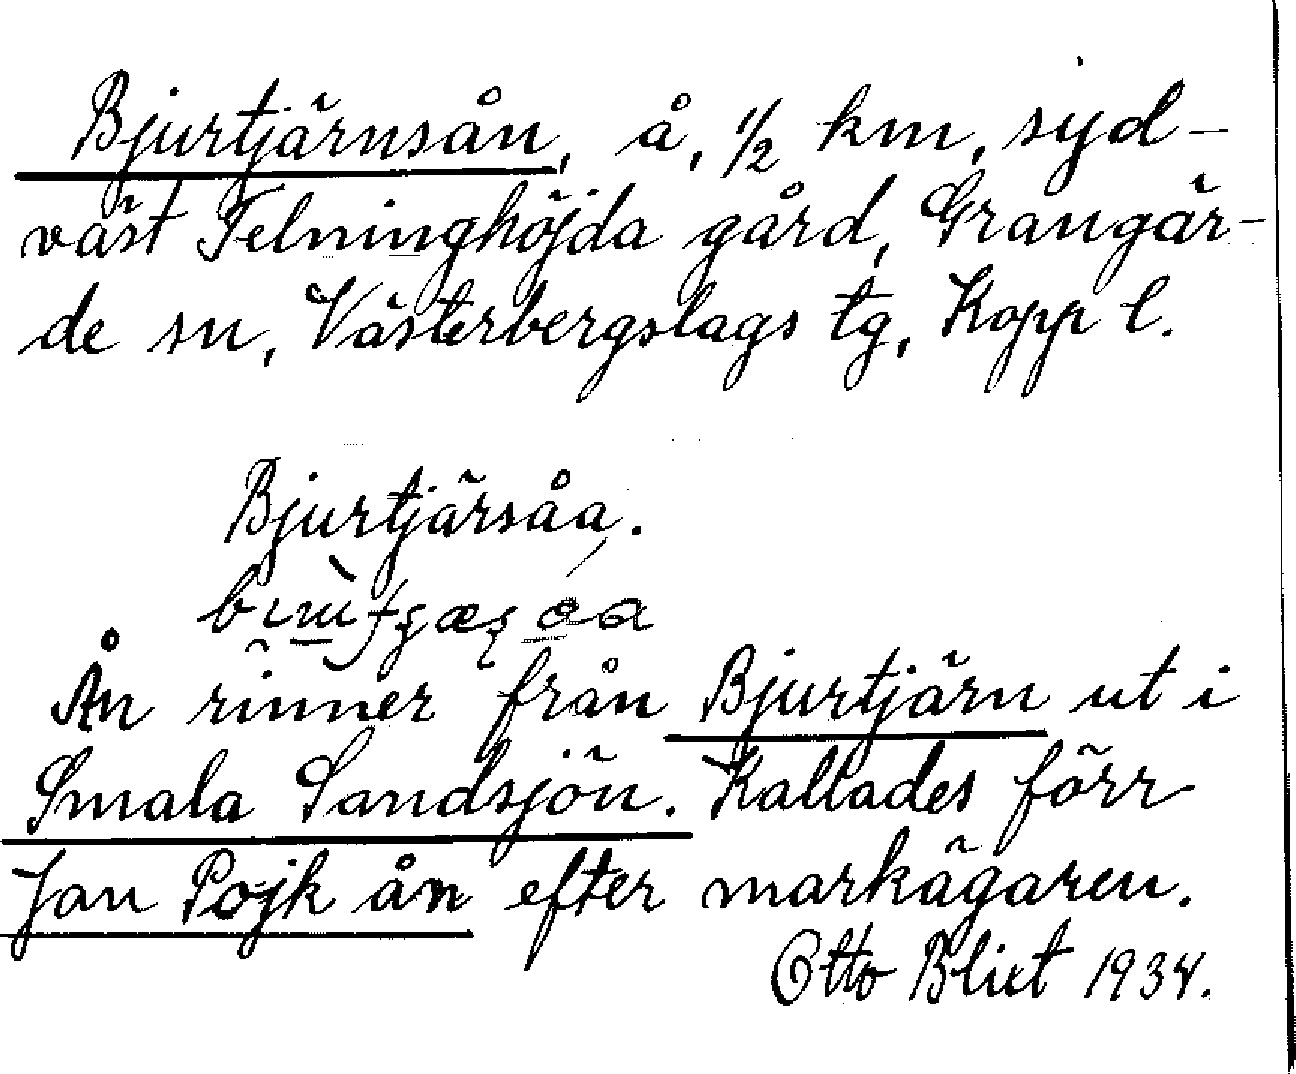 Bjurtjärnsån, å, 1/2 km, syd-
väst Felninghöjda gård, Grangär-
de sn, Västerbergslags tg, Kopp l.
Bjurtjärsåa.
Ån rinner från Bjurtjärn ut i
Smala Sandsjön. Kallades förr
Jan Pojk ån efter markägaren.
Otto Blixt 1934.